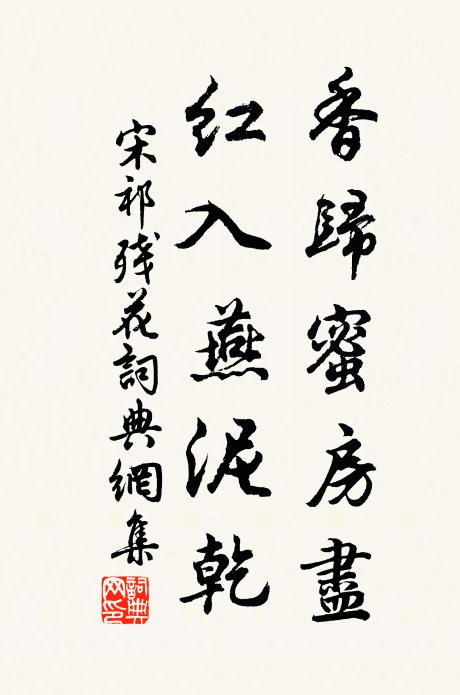 香歸蜜房盡
紅入燕泥乾
宋祁殘花詞典網集
詞典網印